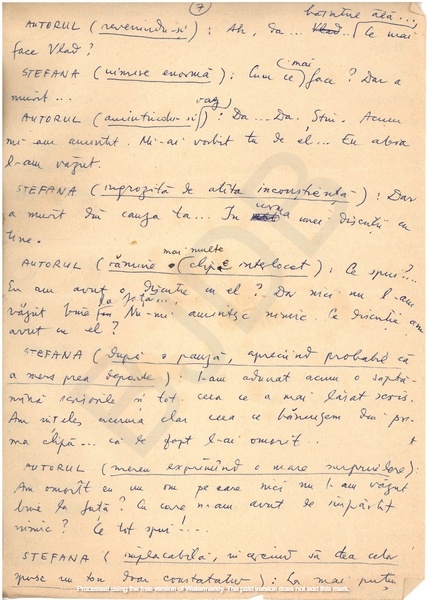 7
bătrîne ăla...,
AUTORUL (revenindu-și): Ah, da... Ce mai
face Vlad?
STEFANA (uimire enormă): Cum ce mai face? Dar a
murit...
AUTORUL (amintindu-și vag): Da... Da. Știu. Acum
mi-am amintit. Mi-ai vorbit tu de el... Eu abia
l-am văzut.
STEFANA (îngrozită de atîta inconștiență): Dar
a murit din cauza ta... În urma unei discuții cu
tine.
AUTORUL (rămîne mai multe clipe interlocat): Ce spui?...
Eu am avut o discuție cu el? Dar nici nu l-am
văzut bine la față... Nu-mi amintesc nimic. Ce discuție am
avut cu el?
STEFANA (după o pauză, apreciind probabil că
a mers prea departe): L-am adunat acum o săptă-
mînă scrisorile și tot ceea ce a mai lăsat scris.
Am înțeles acuma clar ceea ce bănuisem din pri-
ma clipă... că de fapt l-ai omorît...
AUTORUL (mereu exprimînd o mare surprindere):
Am omorît eu un om pe care nici nu l-am văzut
bine la față? Cu care n-am avut de împărțit
nimic? Ce tot spui!...
STEFANA (implacabilă, nereușind să dea celor
spuse un ton doar constatator): La mai puțin
Processed using the free version of Watermarkly. The paid version does not add this mark.